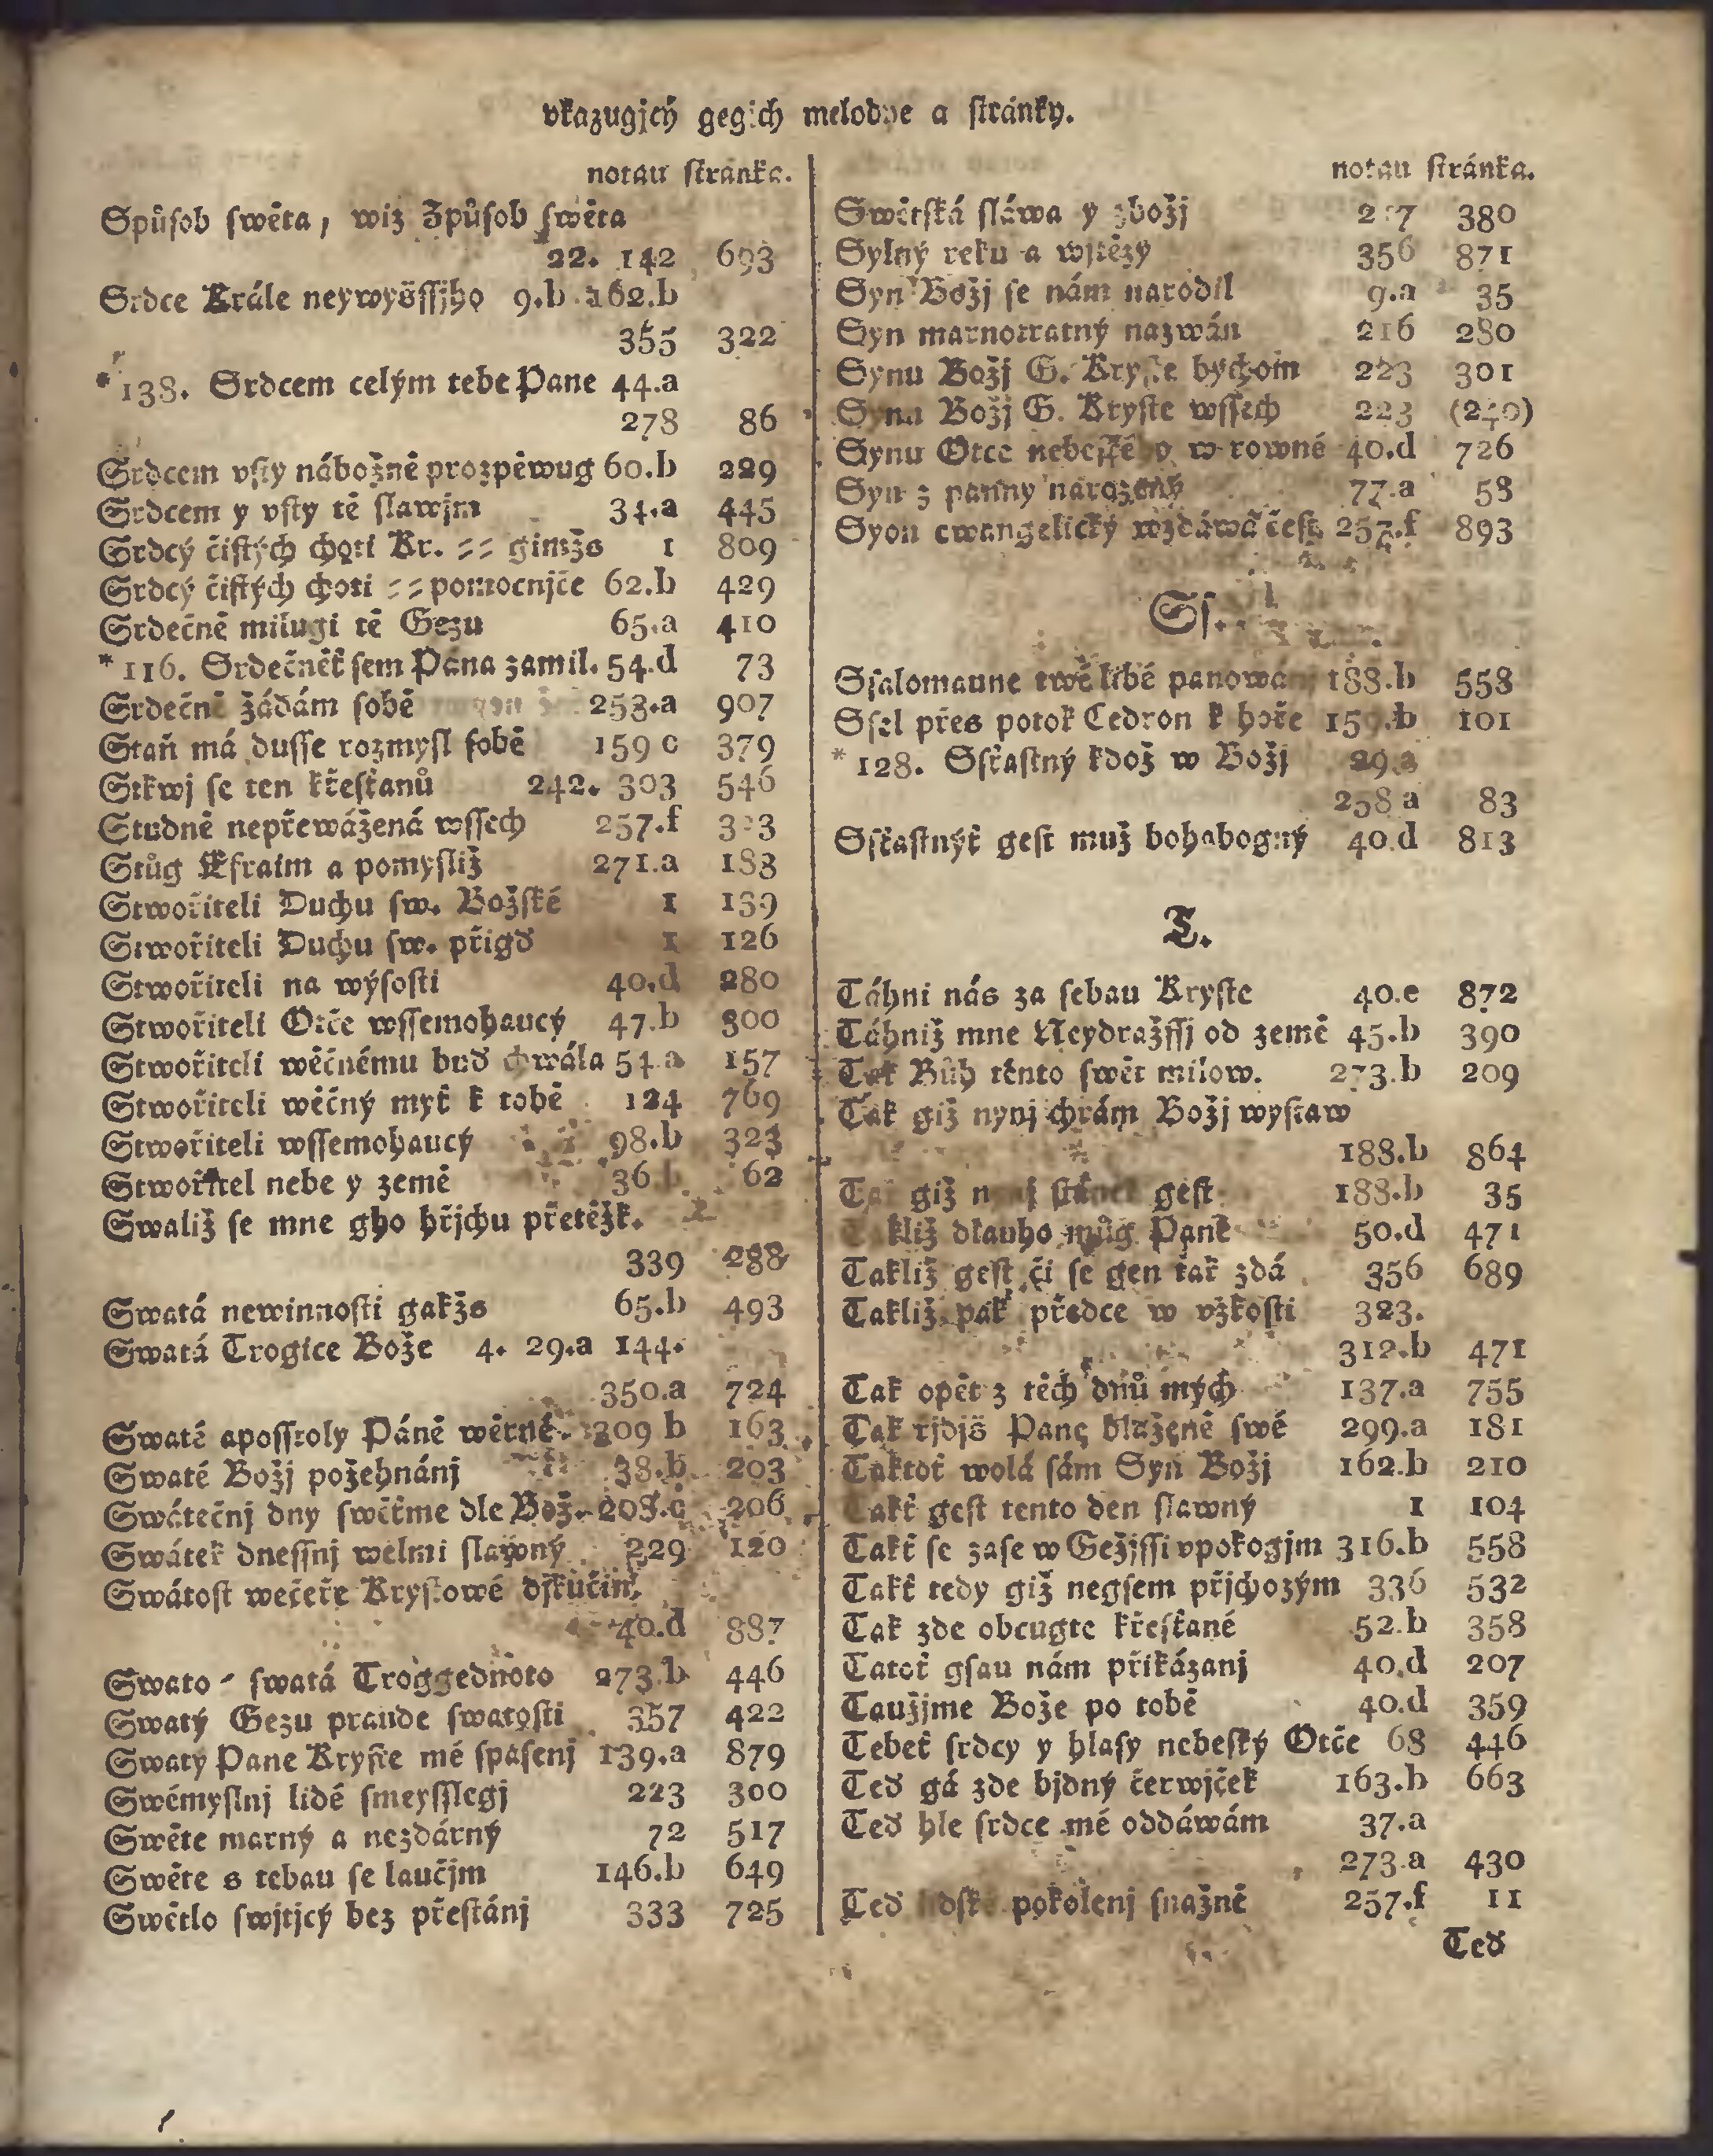 vkazugjcý gegich melodye a ſtránky.
notau ſtránka.
Spůſob ſwěta, wiz Způſob ſwěta
22. 142 693
Srdce Krále neywyšſſjho 9.b 162.b
355 322
* 138. Srdcem celým tebe Pane 44.a
278 86
Srdcem vſty nábožně prozpěwug 60.b 229
Srdcem y vſty tě ſlawjm 34.a 445
Srdcý čiſtých choti Kr. == gimžs 1 809
Srdcý čiſtých choti == pomocnjče 62.b 429
Srdečně milugi tě Gezu 65.a 410
* 116. Srdečněť ſem Pána zamil. 54.d 73
Srdečně žádám ſobě 253.a 907
Staň má duſſe rozmyſl ſobě 159 c 379
Stkwj ſe ten křeſťanů 242. 303 546
Studně nepřewážená wſſech 257.f
Stůg Efraim a pomyſliž 271.a 183
Stwořiteli Duchu ſw. Božſké 1 139
Stwořiteli Duchu ſw. přigď 1 126
Stwořiteli na wýſoſti 40.d 280
Stwořiteli Otče wſſemohaucý 47.b 300
Stwořiteli wěčnému buď chwála 54.a 157
Stwořiteli wěčný myť k tobě 124 769
Stwořiteli wſſemohaucý 98.b 323
Stwořitel nebe y země 36 62
Swaliž ſe mne gho hřjchu přetěžk.
339 288
Swatá newinnoſti gakžs 65.b 493
Swatá Trogice Bože 4. 29.a 144.
350.a 724
Swaté apoſſtoly Páně wěrné 209 b 163
Swaté Božj požehnánj 38.b 203
Swátečnj dny ſwěťme dle Bož. 208.c 206
Swátek dneſſnj welmi ſlawný 229 120
Swátoſt wečeře Kryſtowé djkučiň.
40.d 887
Swato - ſwatá Troggednoto 273.b 446
Swatý Gezu praude ſwatoſti 357 422
Swatý Pane Kryſte mé ſpaſenj 139.a 879
Swémyſlnj lidé ſmeyſſlegj 223 300
Swěte marný a nezdárný 72 517
Swěte s tebau ſe laučjm 146.b 649
Swětlo ſwjtjcý bez přeſtánj 333 725
notau ſtránka.
Swětſká ſláwa y zbožj 380
Sylný reku a wjtězy 356 871
Syn Božj ſe nám narodil 9.a 35
Syn marnotratný nazwán 216 280
Synu Božj G. Kryſte bychom 223 301
Synu Božj G. Kryſte wſſech 223 (240)
Synu Otce nebeſkého w rowné 40.d 726
Syn z panny narozený 77.a 58
Syon ewangelický wzdáwá čeſt 257.f 893
Sſ.
Sſalomaune twé libé panowánj 188.b 558
Sſel přes potok Cedron k hoře 159.b 101
* 128. Sſťaſtný kdož w Božj 29.a
258 a 83
Sſťaſtnýť geſt muž bohabogný 40.d 813
T.
Táhni nás za ſebau Kryſte 40.e 872
Táhniž mne Neydražſſj od země 45.b 390
Tak Bůh tento ſwět milow. 273.b 209
Tak giž nynj chrám Božj wyſtaw
188.b 864
Tak giž nynj geſt 188.b 35
Takliž dlauho můg Pane 50.d 471
Takliž geſt či ſe gen tak zdá 356 689
Takliž pak předce w vzkoſti 323.
312.b 471
Tak opět z těch dnů mých 137.a 755
Tak řjdjš Pane blažené ſwé 299.a 181
Taktoť wolá ſám Syn Božj 162.b 210
Takť geſt tento den ſlawný 1 104
Takť ſe zaſe w Gežjſſi vpokogjm 316.b 558
Takť tedy giž negſem přjchozým 336 532
Tak zde obcugte křeſťané 52.b 358
Tatoť gſau nám přikázanj 40.d 207
Taužjme Bože po tobě 40.d 359
Tebeť ſrdcy y hlaſy nebeſký Otče 68 446
Teď gá zde bjdný čerwjček 163.b 663
Teď hle ſrdce mé oddáwám 37.a
273.a 430
Teď lidſké pokolenj ſnažně 257.f 11
Teď